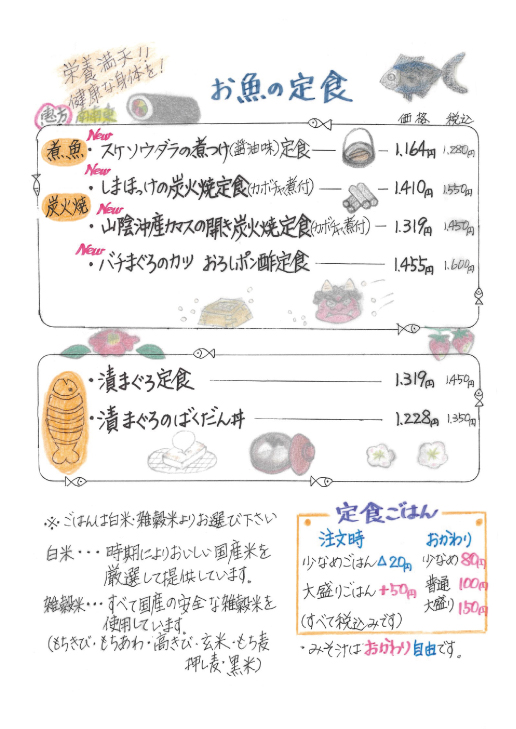 栄養満天!!
健康な身体を!
お魚の定食
恵方 南南東
価格 税込
煮魚
New
・スケソウダラの煮つけ(醤油味)定食 1.164円 1.280円
New
・しまほっけの炭火焼定食(カボチャ煮付) 1.410円 1.550円
炭火焼
New
・山陰沖産カマスの開き炭火焼定食(カボチャ煮付) 1.319円 1.450円
New
・バチまぐろのカツ おろしポン酢定食 1.455円 1.600円
・漬まぐろ定食 1.319円 1.450円
・漬まぐろのばくだん丼 1.228円 1.350円
※ごはんは白米・雑穀米よりお選び下さい
白米・・・時期によりおいしい国産米を
厳選して提供しています。
雑穀米・・・すべて国産の安全な雑穀米を
使用しています。
(もちきび・もちあわ・高きび・玄米・もち麦
押し麦・黒米)
定食ごはん
注文時 おかわり
少なめごはん△20円 少なめ 80円
大盛りごはん+50円 普通 100円
大盛り 150円
(すべて税込みです)
・みそ汁はおかわり自由です。